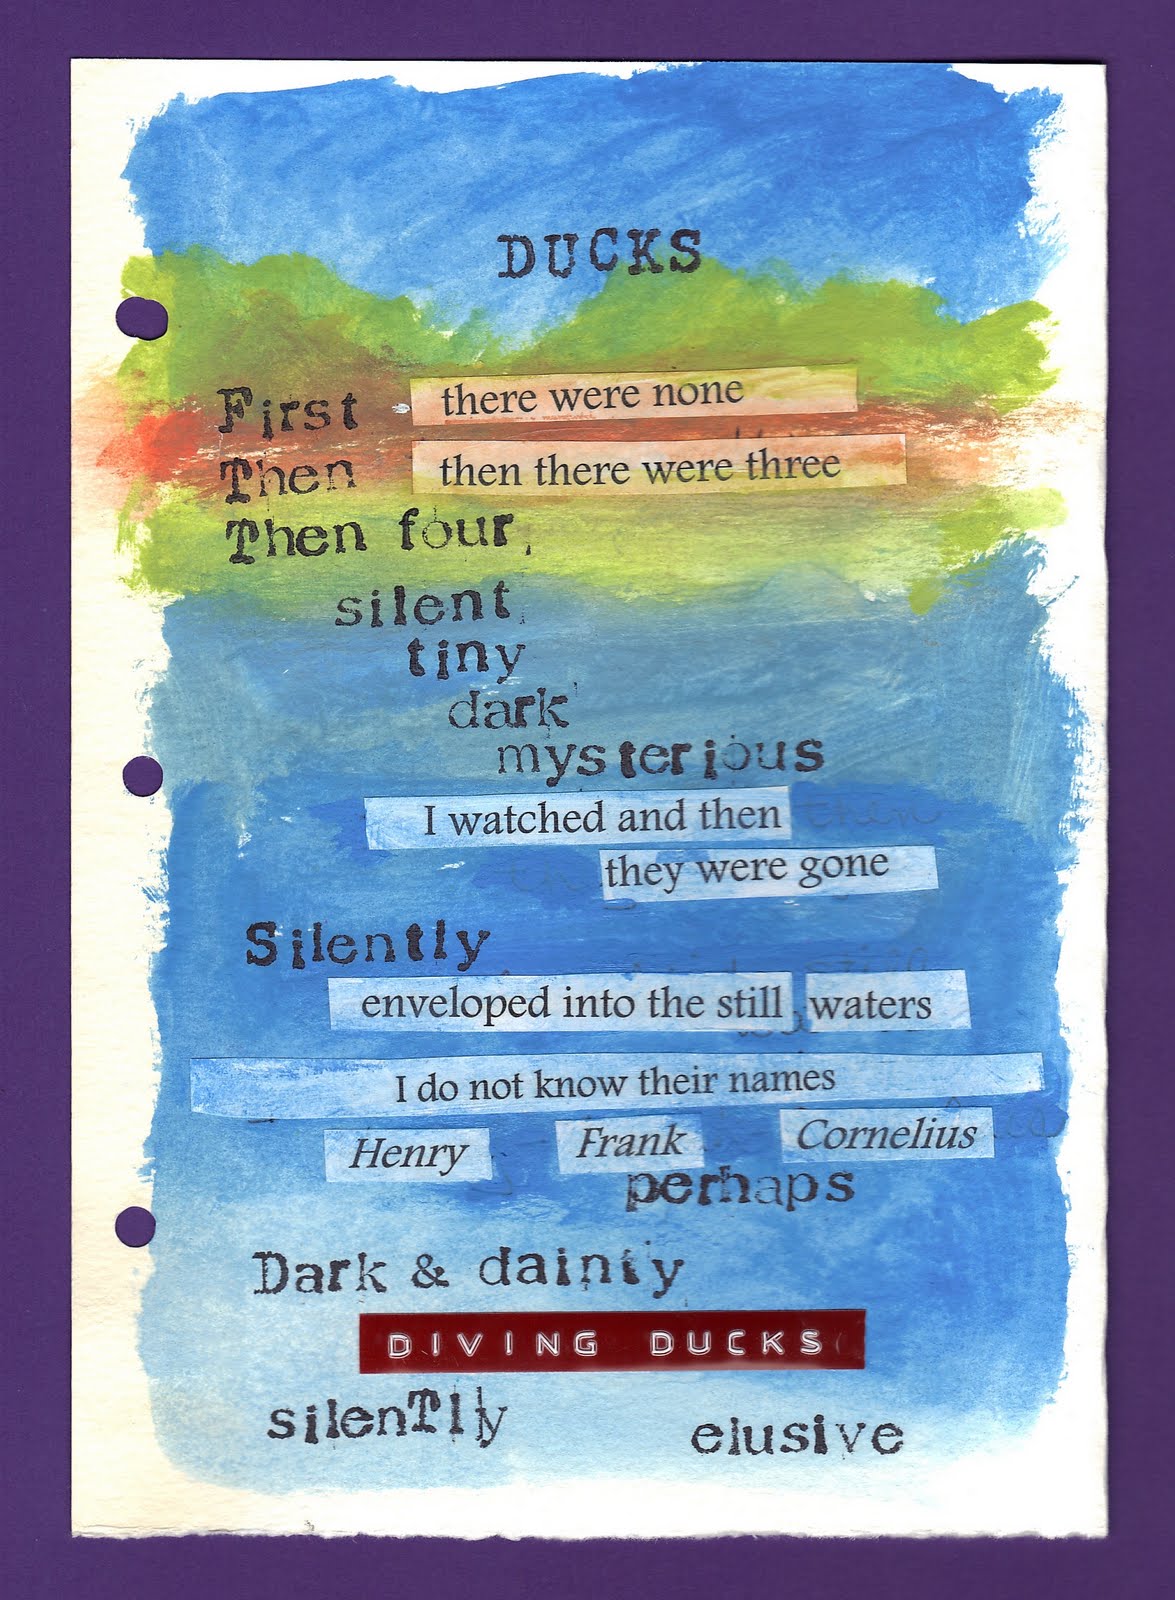 DUCKS
First there were none
Then then there were three
Then four,
silent,
tiny
dark
mysterious
I watched and then
they were gone
Silently
enveloped into the still waters
I do not know their names
Henry Frank Cornelius
perhaps
Dark & dainty
DIVING DUCKS
silenTlly elusive